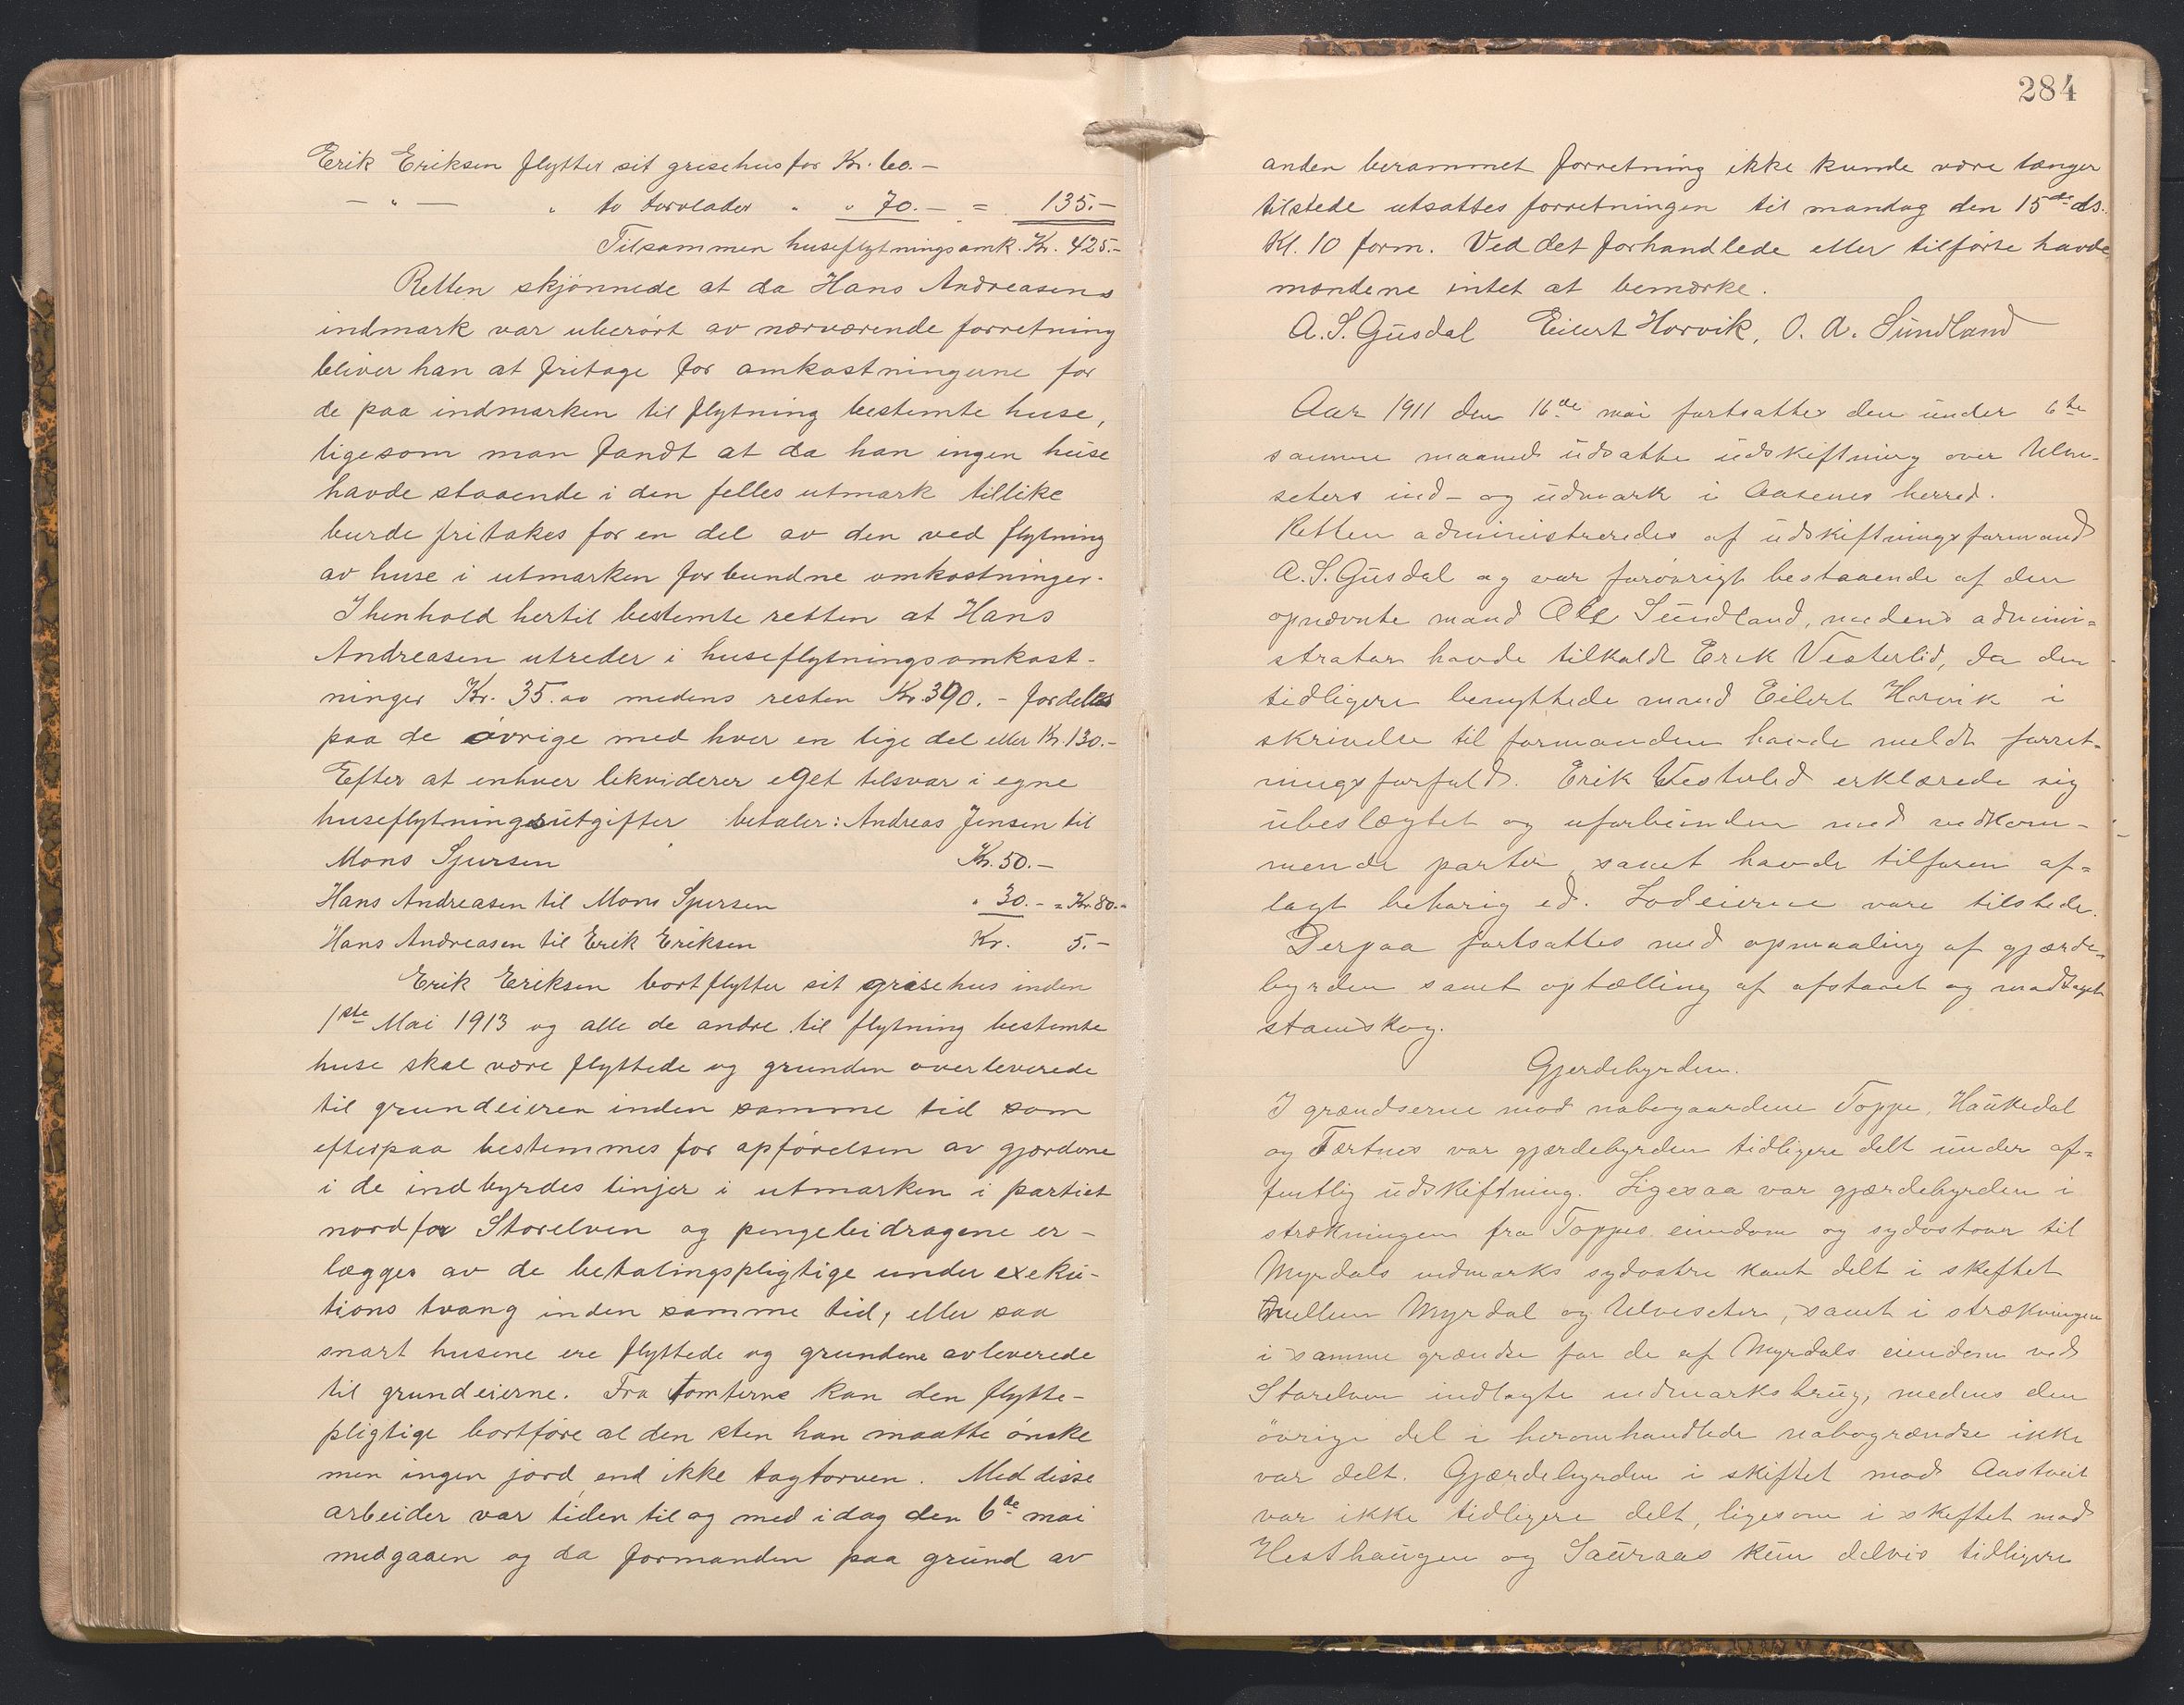 Erik Eriksen flytter sit grisehus for Kr. 60.-
- " - " to torvlader " " 70.- = 135.-
Tilsammen huseflytningsomk. Kr. 425.-
Retten skjønnede at da Hans Andreasens
indmark var uberørt av nærværende forretning
bliver han at fritage for omkostningerne for
de paa indmarken til flytning bestemte huse,
ligesom man fandt at da han ingen huse
havde staaende i den felles utmark tillike
burde fritakes for en del av den ved flytning
av huse i utmarken forbundne omkostninger.
I henhold hertil bestemte retten at Hans
Andreasen utreder i huseflytningsomkost-
ninger Kr. 35.00 medens resten Kr. 390.- fordeles
paa de øvrige med hver en lige del eller Kr. 130.-
Efter at enhver likviderer eget tilsvar i egne
huseflytningsutgifter betaler: Andreas Jensen til
Mons Sjursen Kr. 50.-
Hans Andreasen til Mons Sjursen " 30.- = Kr. 80.-
Hans Andreasen til Erik Eriksen Kr. 5.-
Erik Eriksen bortflytter sit grisehus inden
1ste Mai 1913 og alle de andre til flytning bestemte
huse skal være flyttede og grunden overleverede
til grundeieren inden samme tid som
efterpaa bestemmes for opførelsen av gjærderne
i de indbyrdes linjer i utmarken i partiet
nordfor Storelven og pengebidragene er-
lægges av de betalingspligtige under exeku-
tions tvang inden samme tid, eller saa
snart husene ere flyttede og grundene avleverede
til grundeierne. Fra tomterne kan den flytte-
pligtige bortføre al den sten han maatte ønske
men ingen jord, end ikke tagtorven. Med disse
arbeider var tiden til og med idag den 6de mai
medgaaen og da formanden paa grund av
284
anden berammet forretning ikke kunde være længer
tilstede utsattes forretningen til mandag den 15de ds.
Kl. 10 form. Ved det forhandlede eller tilførte havde
mændene intet at bemærke.
A. S. Gusdal Eilert Horvik, O. A. Sundland
Aar 1911 den 16de mai fortsattes den under 6te
samme maaned udsatte udskiftning over Ulve-
seters ind- og udmark i Aasenes herred.
Retten administreredes af udskiftningsformand
A. S. Gusdal og var forøvrigt bestaaende af den
opnævnte mand Ole Sundland, medens admini-
strator havde tilkaldt Erik Vesterlid, da den
tidligere benyttede mand Eilert Horvik i
skrivelse til formanden havde meldt forret-
ningsforfald. Erik Vesterlid erklærede sig
ubeslægtet og uforbunden med vedkom-
mende parter, samt havde tilforn af-
lagt behørig ed. Lodeierne vare tilstede.
Derpaa fortsattes med opmaaling af gjærde-
byrden samt optælling af afstaaet og modtaget
stamskog.
Gjerdebyrden.
I grændserne mod nabogaardene Toppe, Haukedal
og Tertnes var gjærdebyrden tidligere delt under of-
fentlig udskiftning. Ligesaa var gjærdebyrden i
strækningen fra Toppes eiendom og sydostover til
Myrdals indmarks sydøstre kant delt i skiftet
mellem Myrdal og Ulveseter, samt i strækningen
i samme grændse for de af Myrdals eiendom ved
Storelven indlagte indmarksbrug, medens den
øvrige del i heromhandlede nabogrændse ikke
var delt. Gjærdebyrden i skiftet mod Aastveit
var ikke tidligere delt, ligesom i skiftet mod
Hesthaugen og Sauraas kun delvis tidligere